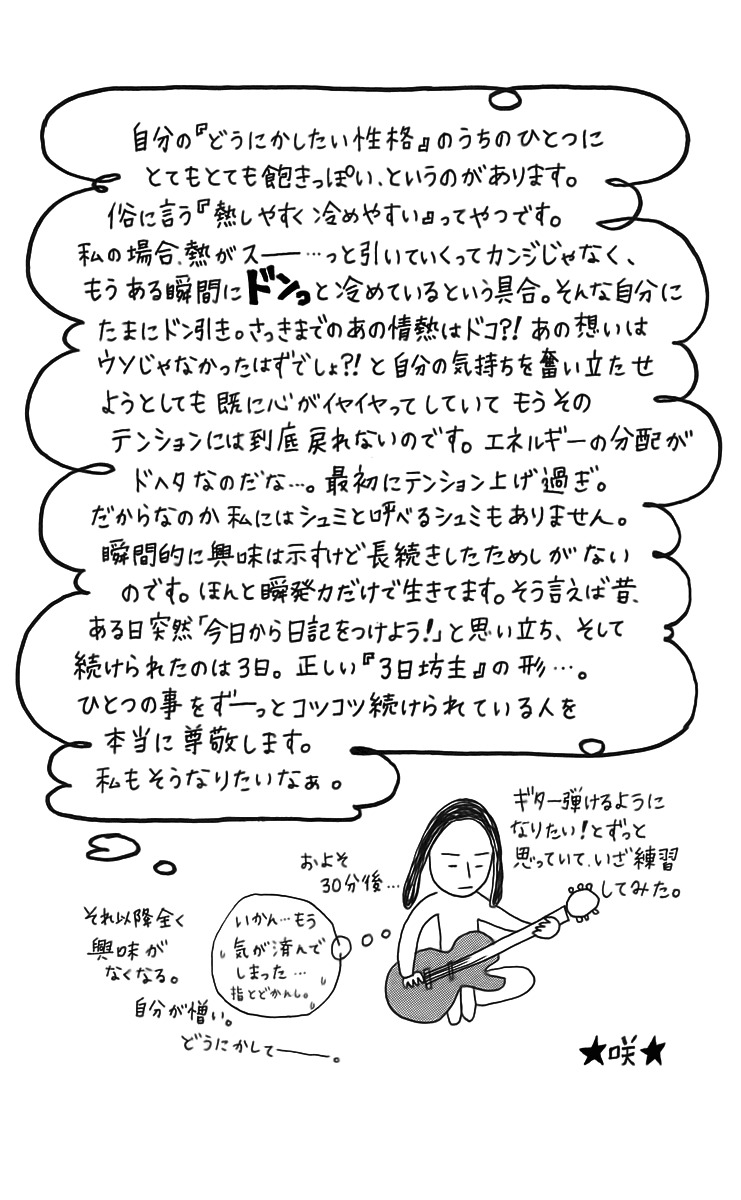 自分の『どうにかしたい性格』のうちのひとつに
とてもとても飽きっぽい、というのがあります。
俗に言う『熱しやすく冷めやすい』ってやつです。
私の場合、熱がスー…っと引いていくってカンジじゃなく、
もうある瞬間にドンっと冷めているという具合。そんな自分に
たまにドン引き。さっきまでのあの情熱はドコ?!あの想いは
ウソじゃなかったはずでしょ?!と自分の気持ちを奮い立たせ
ようとしても既に心がイヤイヤってしていてもうその
テンションには到底戻れないのです。エネルギーの分配が
ドヘタなのだな…。最初にテンション上げ過ぎ。
だからなのか私にはシュミと呼べるシュミもありません。
瞬間的に興味は示すけど長続きしたためしがない
のです。ほんと瞬発力だけで生きてます。そう言えば昔、
ある日突然「今日から日記をつけよう!」と思い立ち、そして
続けられたのは3日。正しい『3日坊主』の形…。
ひとつの事をずーっとコツコツ続けられている人を
本当に尊敬します。
私もそうなりたいなぁ。
ギター弾けるように
なりたい!とずっと
思っていて、いざ練習
してみた。
およそ
30分後…
いかん…もう
気が済んで
しまった…
指とどかんし。
それ以降全く
興味が
なくなる。
自分が憎い。
どうにかしてー。
★咲★